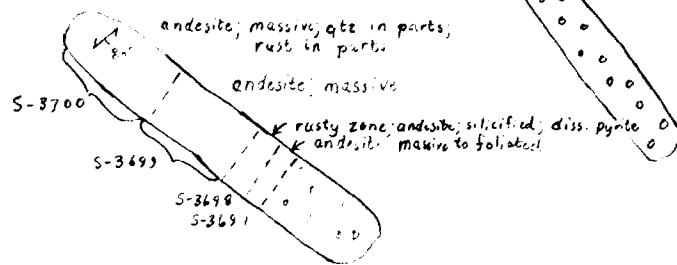 andesite; massive; qtz in parts;
rust in parts
80°
andesite; massive
S-3700
rusty zone; andesite; silicified; diss. pyrite
andesite massive to foliated
S-3699
S-3698